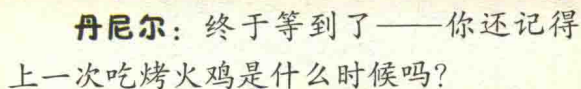 丹尼尔：终于等到了——你还记得
上一次吃烤火鸡是什么时候吗？